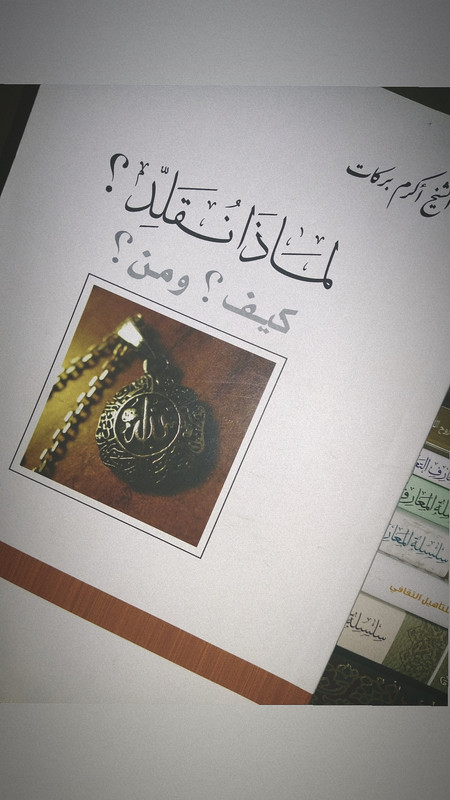 الشيخ أكرم بركات
لماذا نُقلِّد؟
كيف؟ ومن؟
الله
سلسلة المعارف
سلسلة المعار
للتأهيل الثقافي
سلسلة